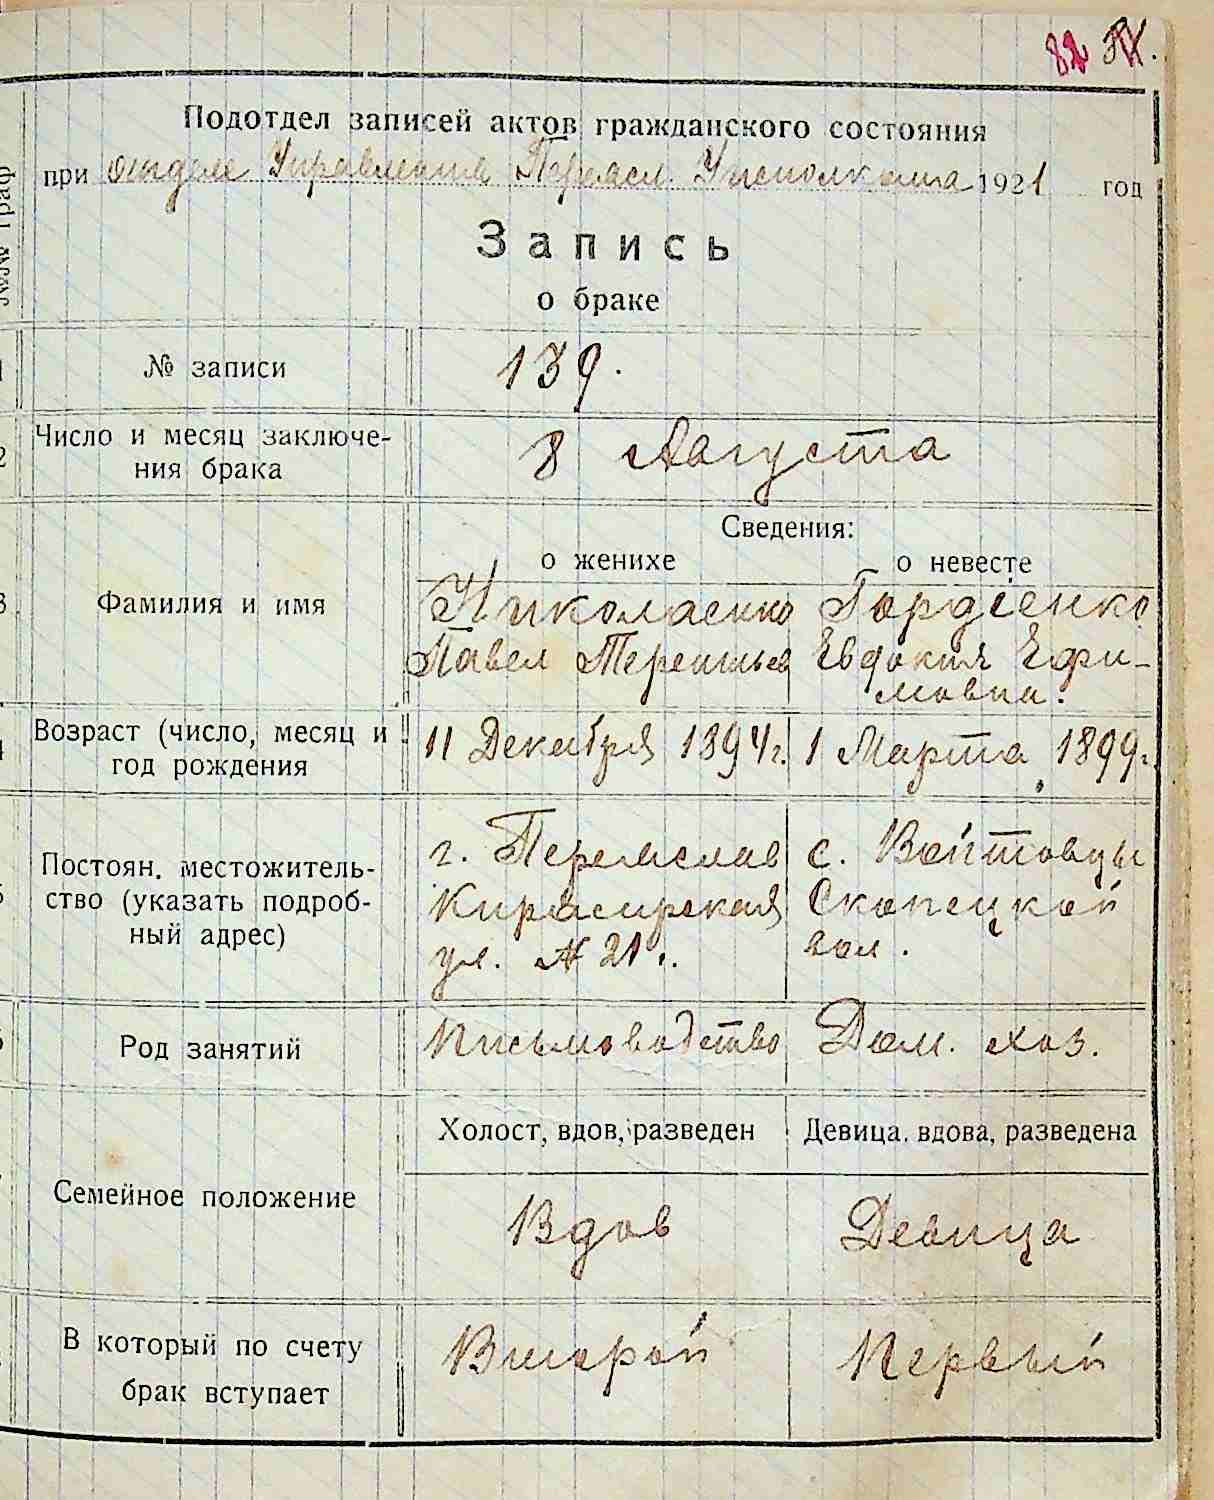 82
Подотдел записей актов гражданского состояния
при отделе Управления Переясл. Уисполкома 1921 год
№№ граф
Запись
о браке
№ записи
139.
Число и месяц заключе-
ния брака
8 Августа
Сведения:
о женихе о невесте
Фамилия и имя
Николаенко Гордіенко
Павел Терентьев Евдокия Ефи-
мовна.
Возраст (число, месяц и
год рождения
11 Декабря 1894г. 1 Марта 1899г.
Постоян. местожитель-
ство (указать подроб-
ный адрес)
г. Переяслав с. Войтовцы
Кирасирская Скопецкой
ул. № 21. вол.
Род занятий
Письмоводство Дом. хоз.
Семейное положение
Холост, вдов, разведен Девица, вдова, разведена
Вдов Девица
В который по счету
брак вступает
Второй Первый